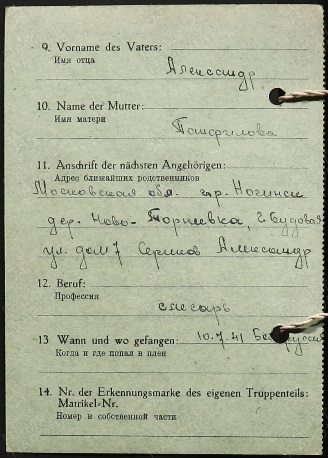 9. Vorname des Vaters:
Имя отца
Александр.
10. Name der Mutter:
Имя матери
Панфилова
11. Anschrift der nächsten Angehörigen:
Адрес ближайших родственников
Московская обл. гор. Ногинск
дер. Ново-
ул. дом 7 Александр
12. Beruf:
Профессия
слесарь
13 Wann und wo gefangen: 10.7.41
Когда и где попал в плен
14. Nr. der Erkennungsmarke des eigenen Truppenteils:
Matrikel-Nr.
Номер в собственной части